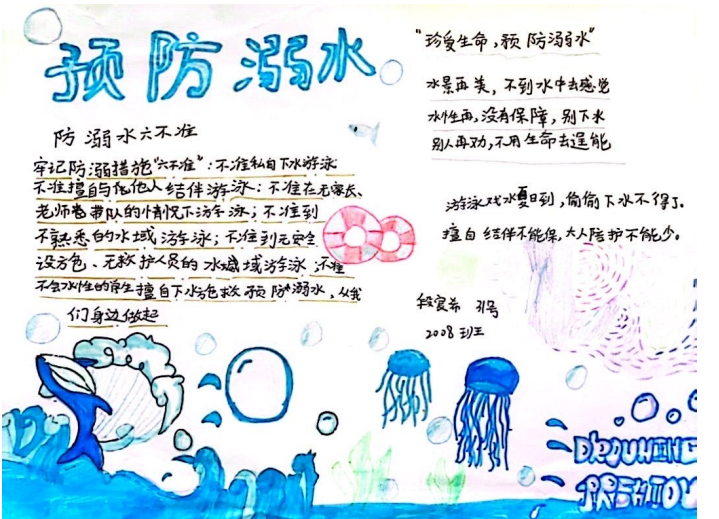 预防溺水
防溺水六不准
牢记防溺措施"六不准"：不准私自下水游泳
不准擅自与他他人结伴游泳；不准在无家长、
老师带队的情况下游泳；不准到
不熟悉的水域游泳；不准到无安全
设、无救护人员的水域域游泳；不准
不会水性的学生擅自下水施救预防溺水，从我
们身边做起
"珍爱生命，预防溺水"
水景再美，不到水中去感觉
水性再，没有保障，别下水
别人再劝，不用生命去逞能
游泳戏水夏日到，偷偷下水不得了。
擅自结伴不能保，大人陪护不能少。
号
2008班